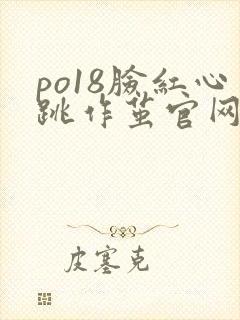 po18臉紅心
跳作茧官网
皮塞克